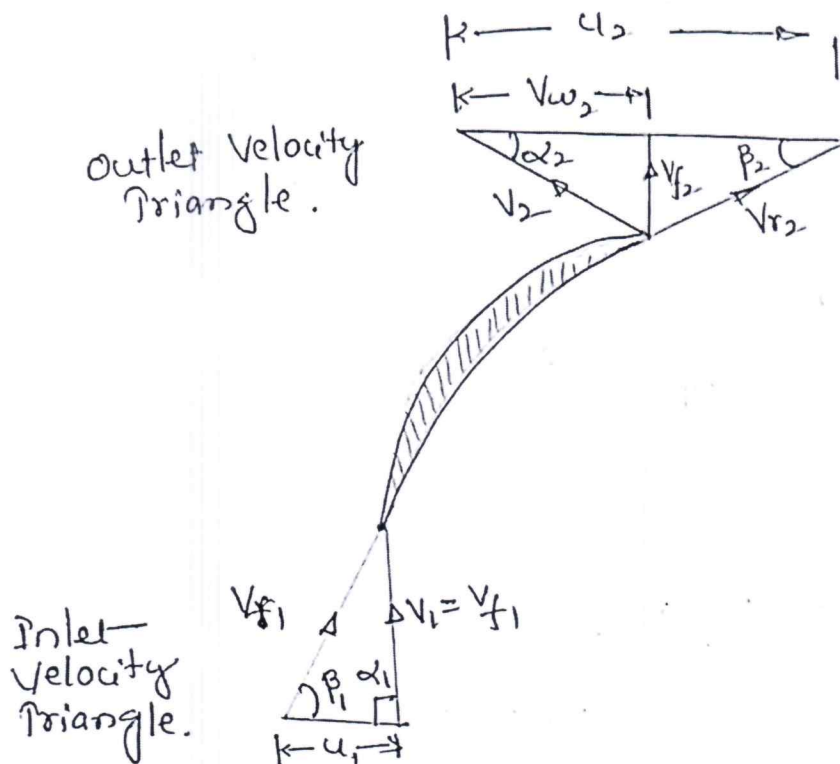 U₂
Vw₂
Outlet Velocity
Triangle.
α₂
β₂
V₂
Vf₂
Vr₂
Vf₁
V₁ = Vf₁
Inlet
Velocity
Triangle.
β₁
α₁
u₁